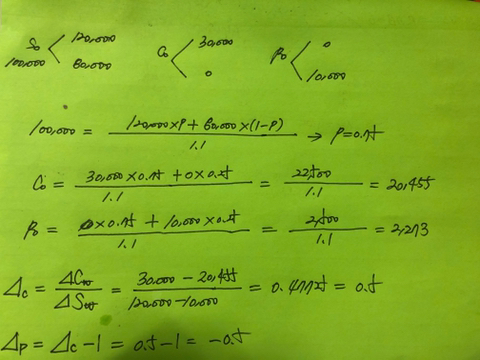 S₀ < 120,000 C₀ < 30,000 P₀ < 0
100,000 80,000 0 10,000
100,000 = (120,000×P + 80,000×(1-P)) / 1.1 → P=0.75
C₀ = (30,000×0.75 + 0×0.25) / 1.1 = 22,500 / 1.1 = 20,455
P₀ = (0×0.75 + 10,000×0.25) / 1.1 = 2,500 / 1.1 = 2,273
Δc = ΔC / ΔS = (30,000 - 20,455) / (120,000 - 10,000) = 0.4775 = 0.5
Δp = Δc - 1 = 0.5 - 1 = -0.5